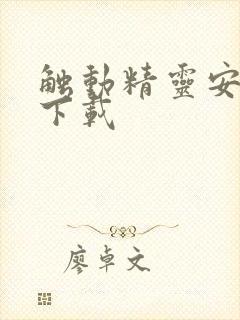 触動精靈安
下載
廖卓文